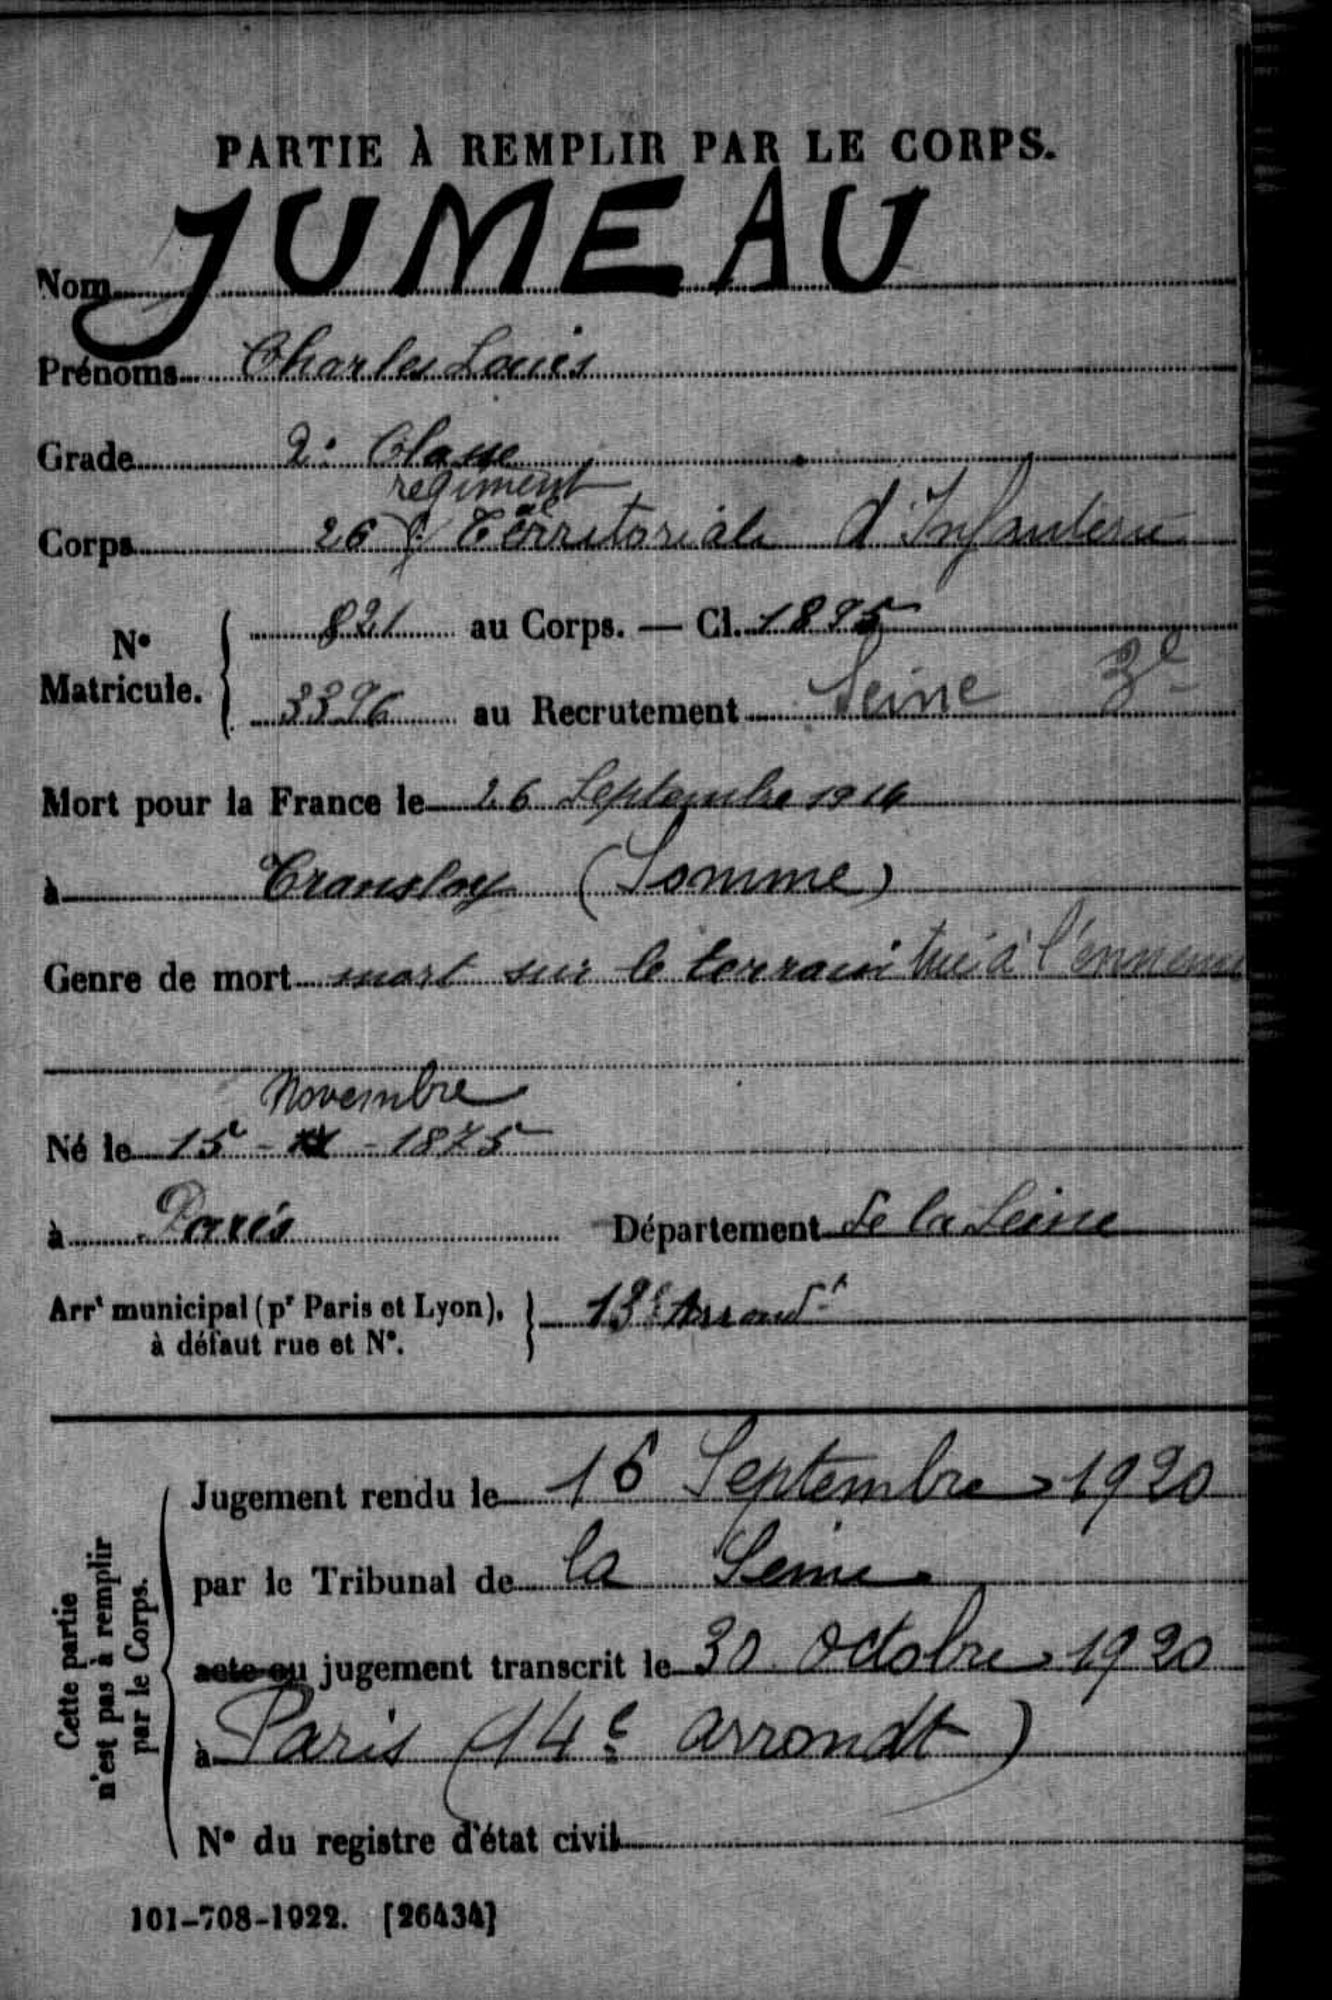 PARTIE À REMPLIR PAR LE CORPS.
Nom JUMEAU
Prénoms Charles Louis
Grade 2e Classe
régiment
Corps 26e Territorial d'Infanterie
N° Matricule. 821 au Corps. — Cl. 1895
3396 au Recrutement Seine 3e
Mort pour la France le 26 Septembre 1914
à Transloy (Somme)
Genre de mort mort sur le terrain tué à l'ennemi
Novembre
Né le 15 - - 1875
à Paris Département de la Seine
Arrt municipal (pr Paris et Lyon), à défaut rue et N°. 13e Arrondt
Cette partie n'est pas à remplir par le Corps.
Jugement rendu le 16 Septembre 1920
par le Tribunal de la Seine
acte ou jugement transcrit le 30 octobre 1920
à Paris (14e arrondt)
N° du registre d'état civil
101-708-1922. [26434]